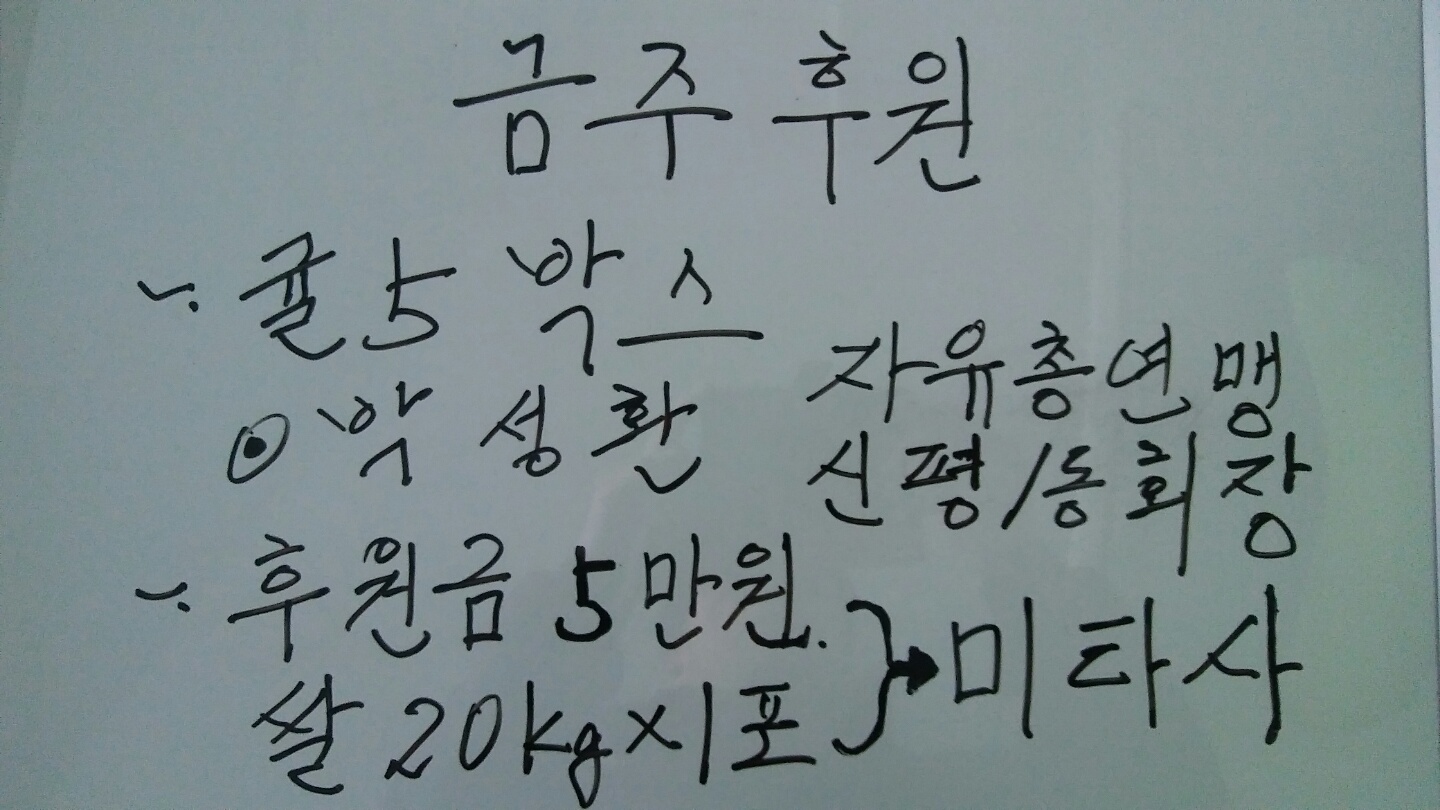 금주 후원
~. 귤 5 박스
⊙ 박성환 자유총연맹
신평/동회장
~. 후원금 5만원.
쌀 20kg×1포 } → 미타사